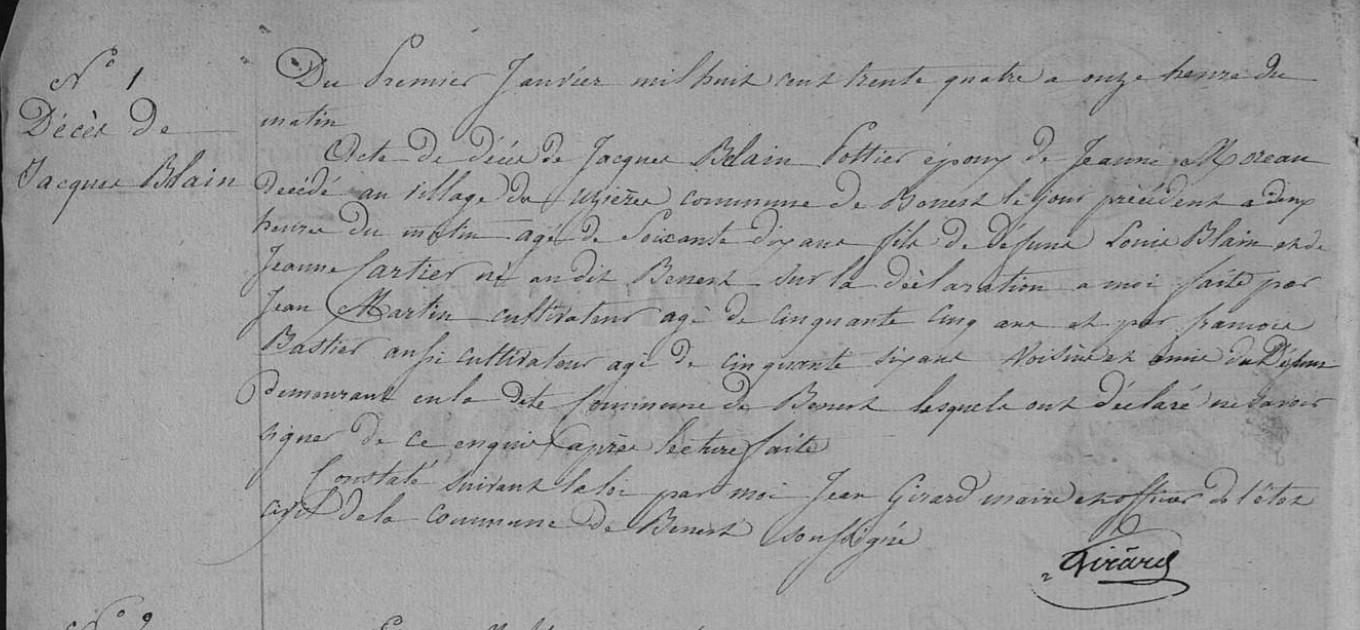 N° 1
Décès de
Jacques Blain
Du Premier Janvier mil huit cent trente quatre a onze heure du
matin
Acte de décès de Jacques Blain Pottier époux de Jeanne Moreau
decédé au village du commune de Benest le jour précédent a deux
heures du matin agé de Soixante dix ans fils de Défunt Louis Blain et de
Jeanne Cartier né au dit Benest sur la déclaration a moi faite par
Jean Martin cultivateur agé de cinquante cinq ans et par francois
Bastier aussi cultivateur agé de cinquante six ans Voisins et amis du Défunt
demeurant en la dite Commune de Benest lesquels ont déclaré ne savoir
signer de ce enquis après lecture faite
Constaté suivant la loi par moi Jean Girard maire et officier de l'état
civil de la commune de Benest soussigné
Girard
N° 2